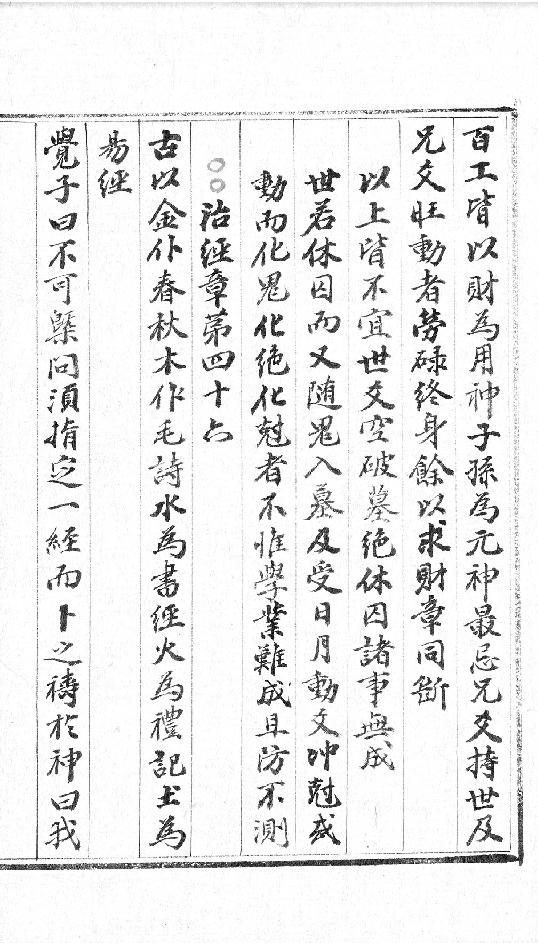 百工皆以財為用神子孫為元神最忌兄爻持世及
兄爻旺動者勞碌終身餘以求財章同斷
以上皆不宜世爻空破墓絶休囚諸事無成
世若休囚而又随鬼入墓及受日月動爻冲尅或
動而化鬼化絶化尅者不惟學業難成且防不測
○○治經章第四十六
古以金作春秋木作毛詩水為書經火為禮記土為
易經
覺子曰不可槩問須指定一經而卜之禱於神曰我